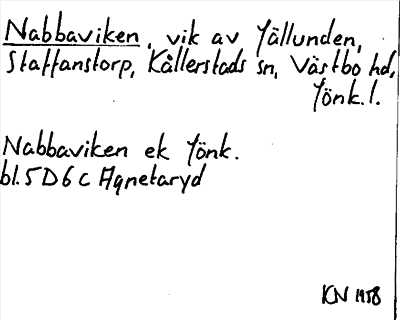 Nabbaviken, vik av Jällunden,
Staffanstorp, Kållerstads sn, Västbo hd,
Jönk. l.
Nabbaviken ek Jönk.
bl. 5 D 6 c Agnetaryd
KN 1958